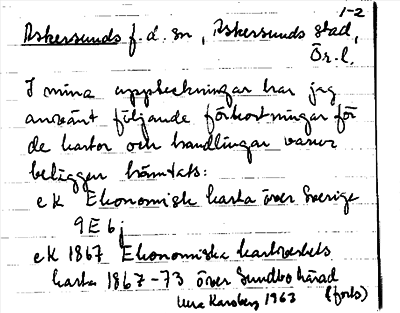 1-2
Askersunds f.d. sn, Askersunds stad,
Ör.l.
I mina uppteckningar har jag
använt följande förkortningar för
de kartor och handlingar varur
beläggen hämtats:
ek Ekonomisk karta över Sverige
9E 6j
ek 1867 Ekonomiska kartverkets
karta 1867-73 över Sundbo härad
Karsberg 1963 (forts)